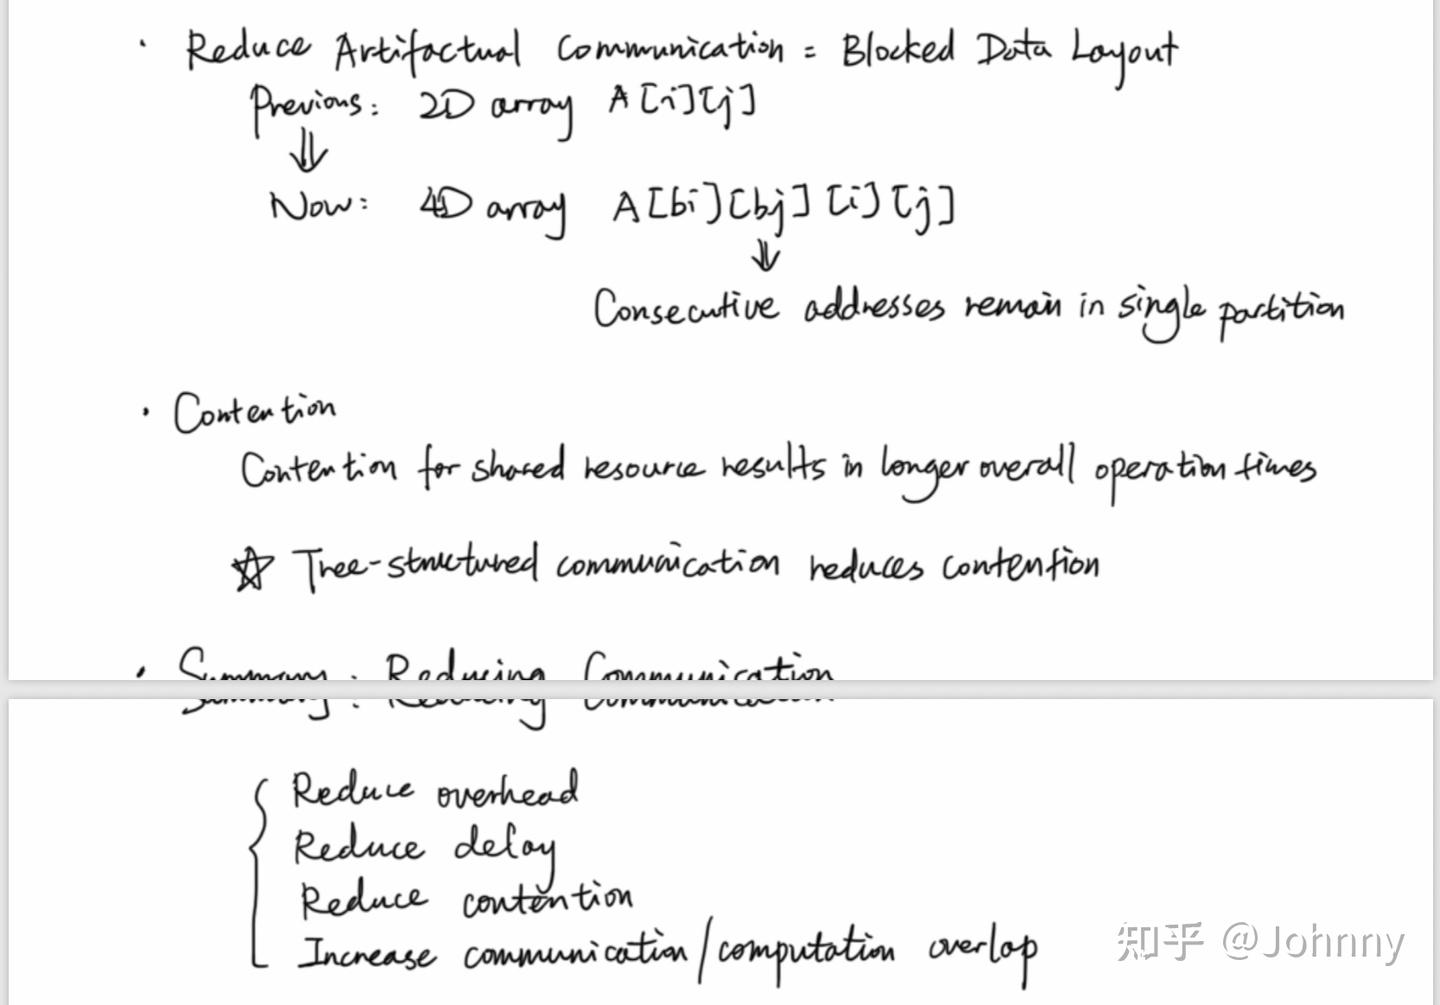 · Reduce Artifactual Communication = Blocked Data Layout
Previous: 2D array A[i][j]
⇓
Now: 4D array A[bi][bj][i][j]
⇓
Consecutive addresses remain in single partition
· Contention
Contention for shared resource results in longer overall operation times
☆ Tree-structured communication reduces contention
· Summary: Reducing Communication
Reduce overhead
Reduce delay
Reduce contention
Increase communication/computation overlap
知乎 @Johnny